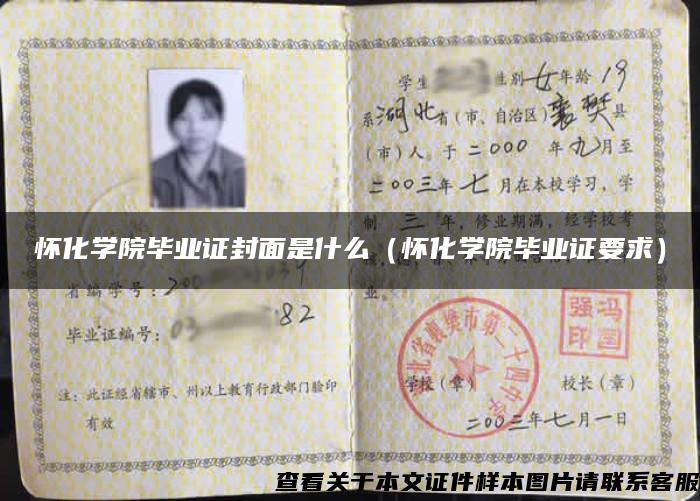 学生 性别女年龄19
系湖北省(市、自治区)襄樊县
(市)人。于二000年九月至
二00三年七月在本校学习,学
制三年,修业期满,经学校考
怀化学院毕业证封面是什么(怀化学院毕业证要求)
业。
省编学号:200
毕业证编号:03 82
注:此证经省辖市、州以上教育行政部门验印
有效
湖北省襄樊市第二十四中学
冯国强印
学校(章)
校长(章)
二00三年七月一日
查看关于本文证件样本图片请联系客服